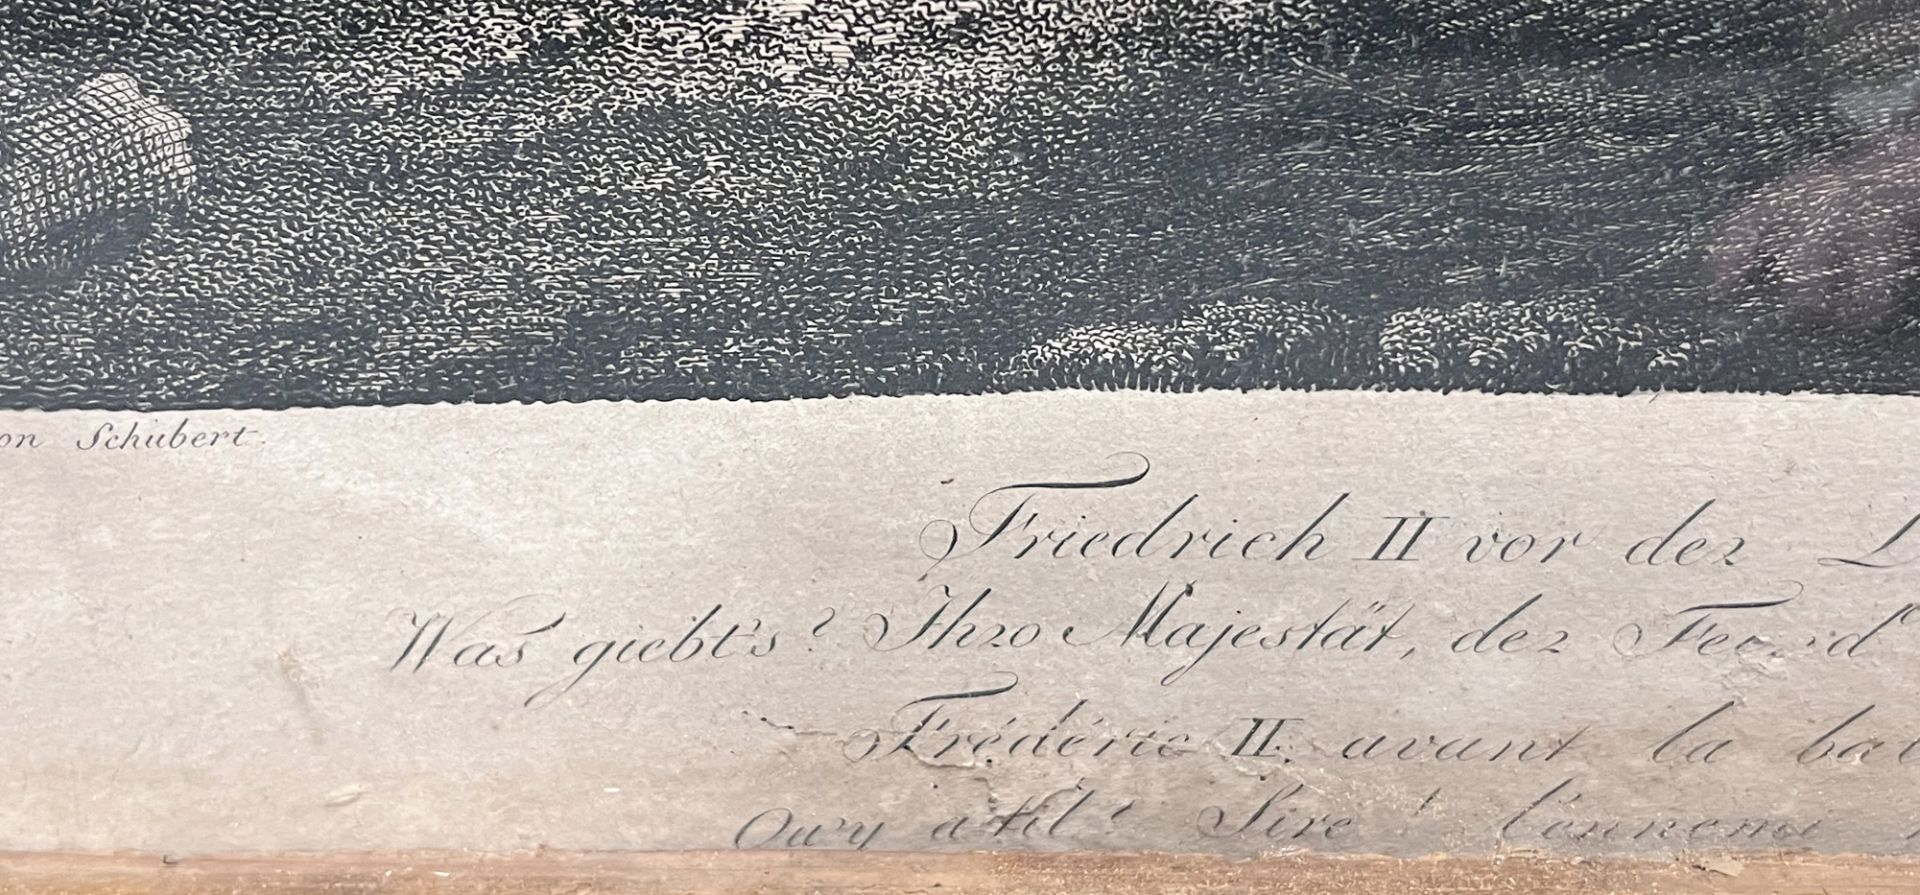 on Schubert.
Friedrich II vor der
Was giebt's? Ihro Majestät, der Feind
Frédéric II. avant la bat
Qu'y at'il? Sire! l'ennemi